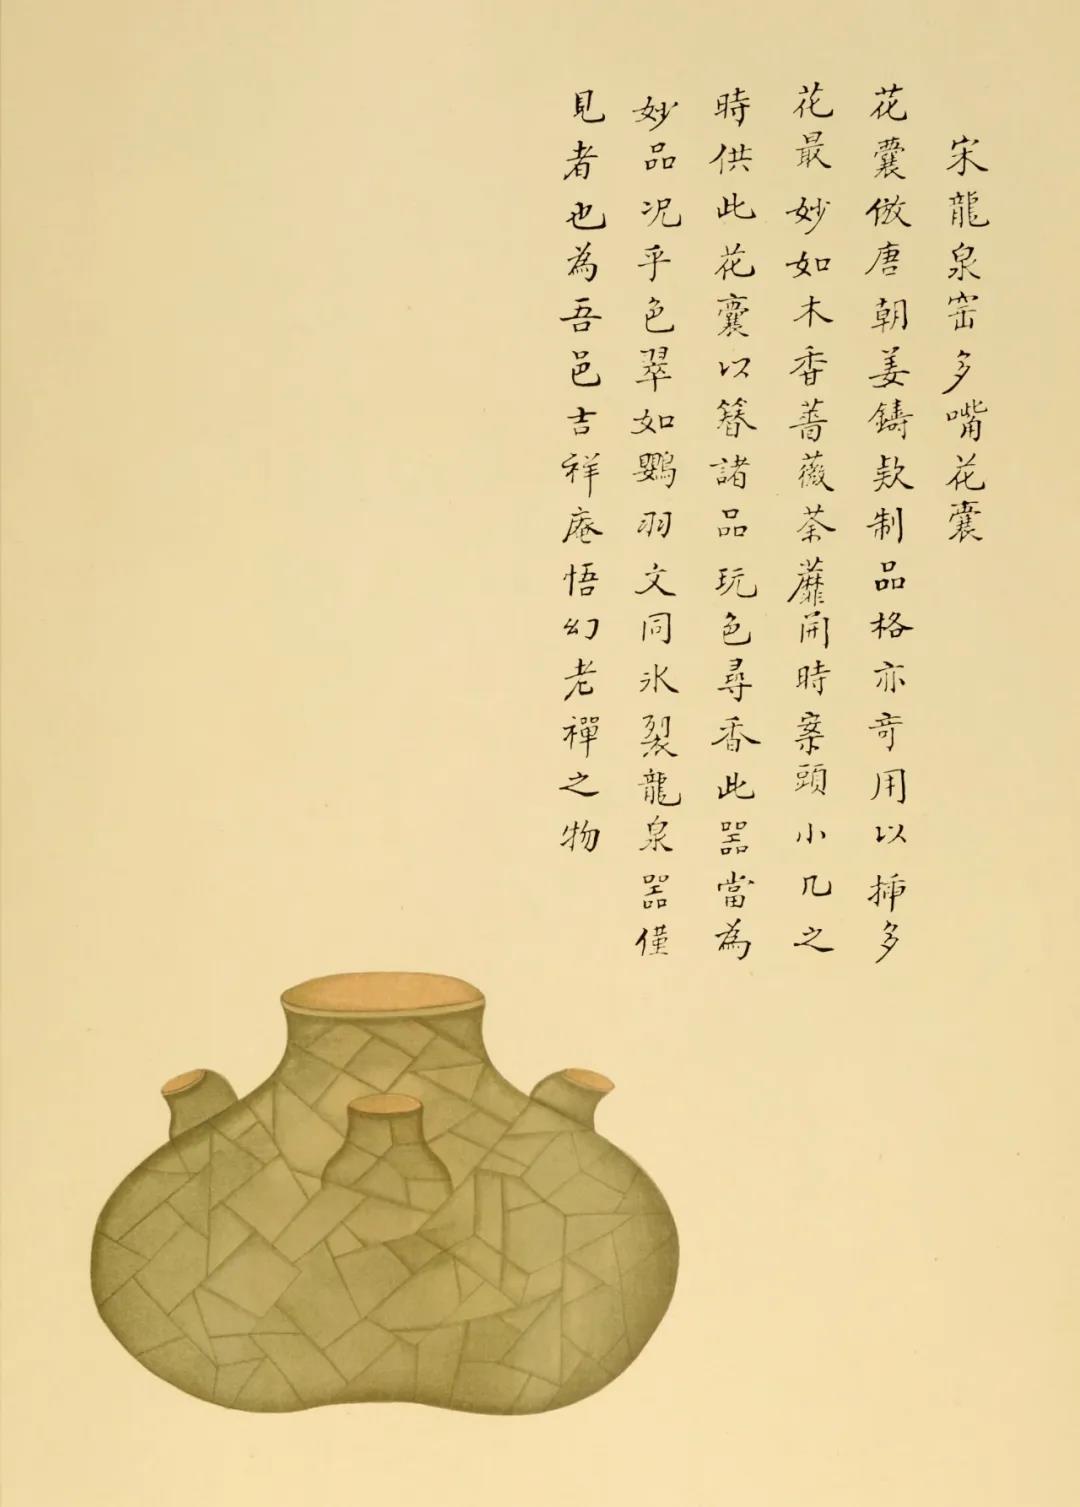 宋龍泉窑多嘴花囊
花囊倣唐朝姜鑄欵制品格亦竒用以揷多
花最妙如木香薔薇荼蘼開時案頭小几之
時供此花囊以簪諸品玩色尋香此噐當為
妙品况乎色翠如鸚羽文同氷裂龍泉噐僅
見者也為吾邑吉祥庵悟幻老禪之物